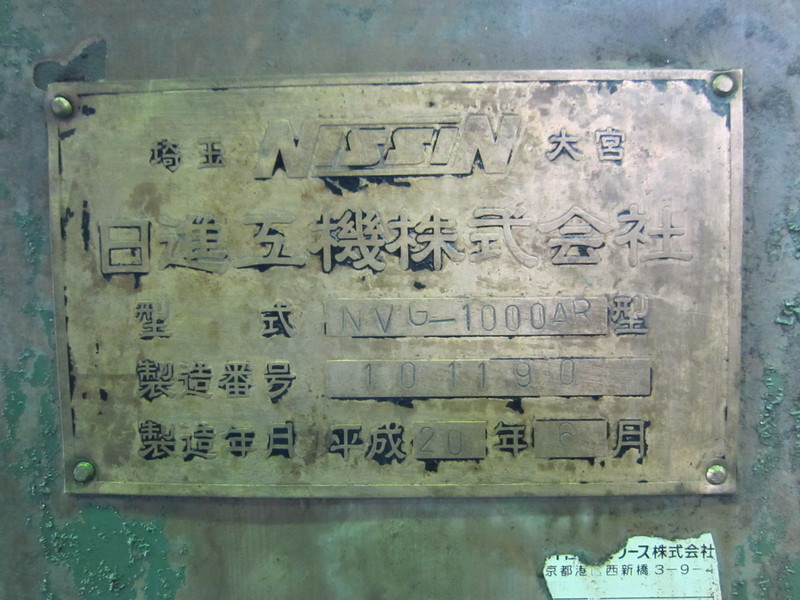 埼玉 NISSIN 大宮
日進工機株式会社
型式 NVG-1000AR 型
製造番号 101190
製造年月 平成20年6月
リース株式会社
京都港 西新橋3-9-4